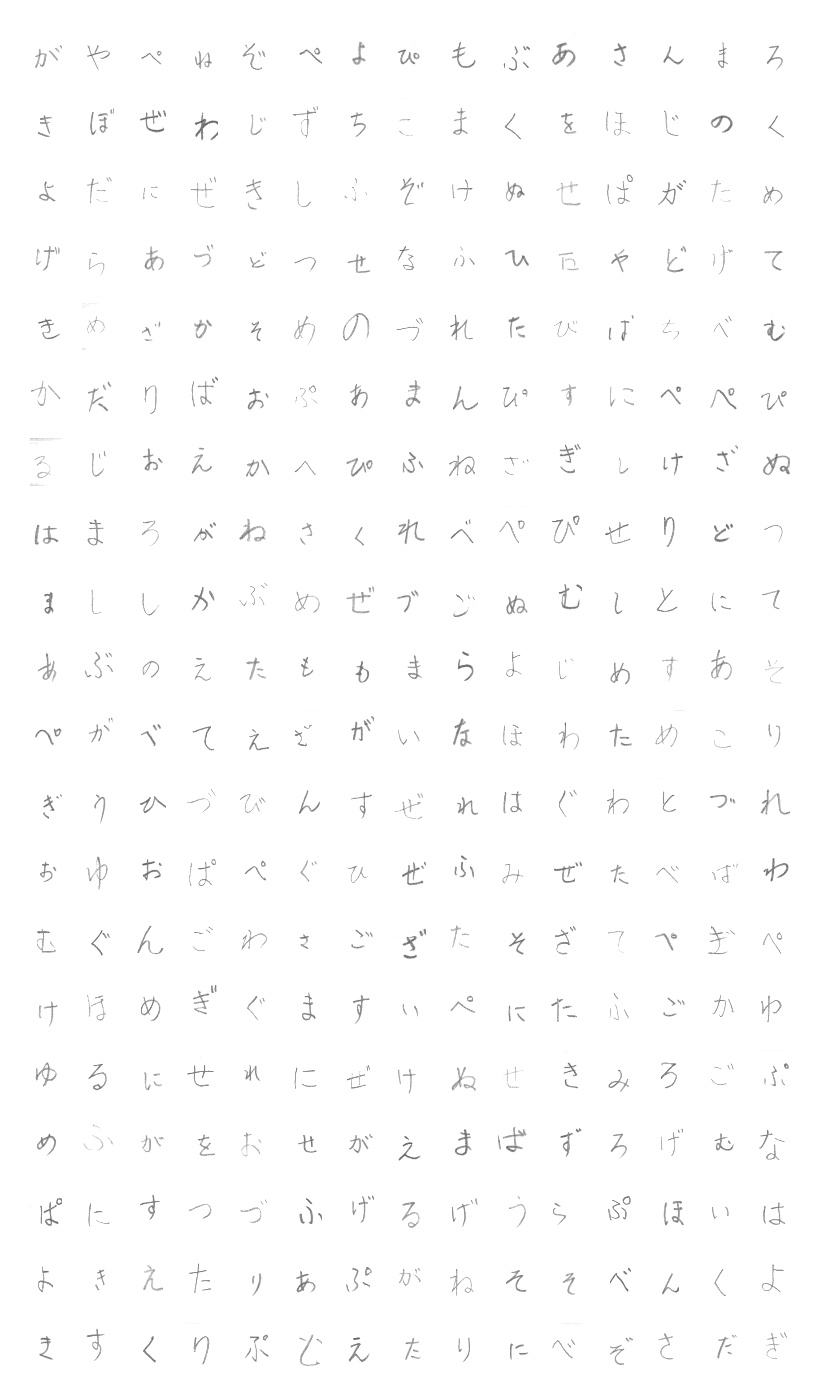 がやぺねぞぺよぴもぶあさんまろ
きぼぜわじずちこまくをほじのく
よだにぜきしふぞけぬせぱがため
げらあづどつせなふひどやどげて
きめざかそめのづれたびばちべむ
かだりばおぷあまんぴすにぺぺぴ
るじおえかへぴふねざぎしけざぬ
はまろがねさくれべぺぴせりどつ
まししかぶめぜづごぬむしとにて
あぶのえたももまらよじめすあそ
ぺがべてえざがいなほわためこり
ぎうひづびんすぜれはぐわとづれ
おゆおぱぺぐひぜふみぜたべばわ
むぐんごわさござたそざてぺぎぺ
けほめぎぐますいぺにたふごかゆ
ゆるにせれにぜけぬせきみろごぷ
めふがをおせがえまばずろげむな
ぱにすつづふげるげうらぷほいは
よきえたりあぷがねそそべんくよ
きすくりぷどえたりにべぞさだぎ